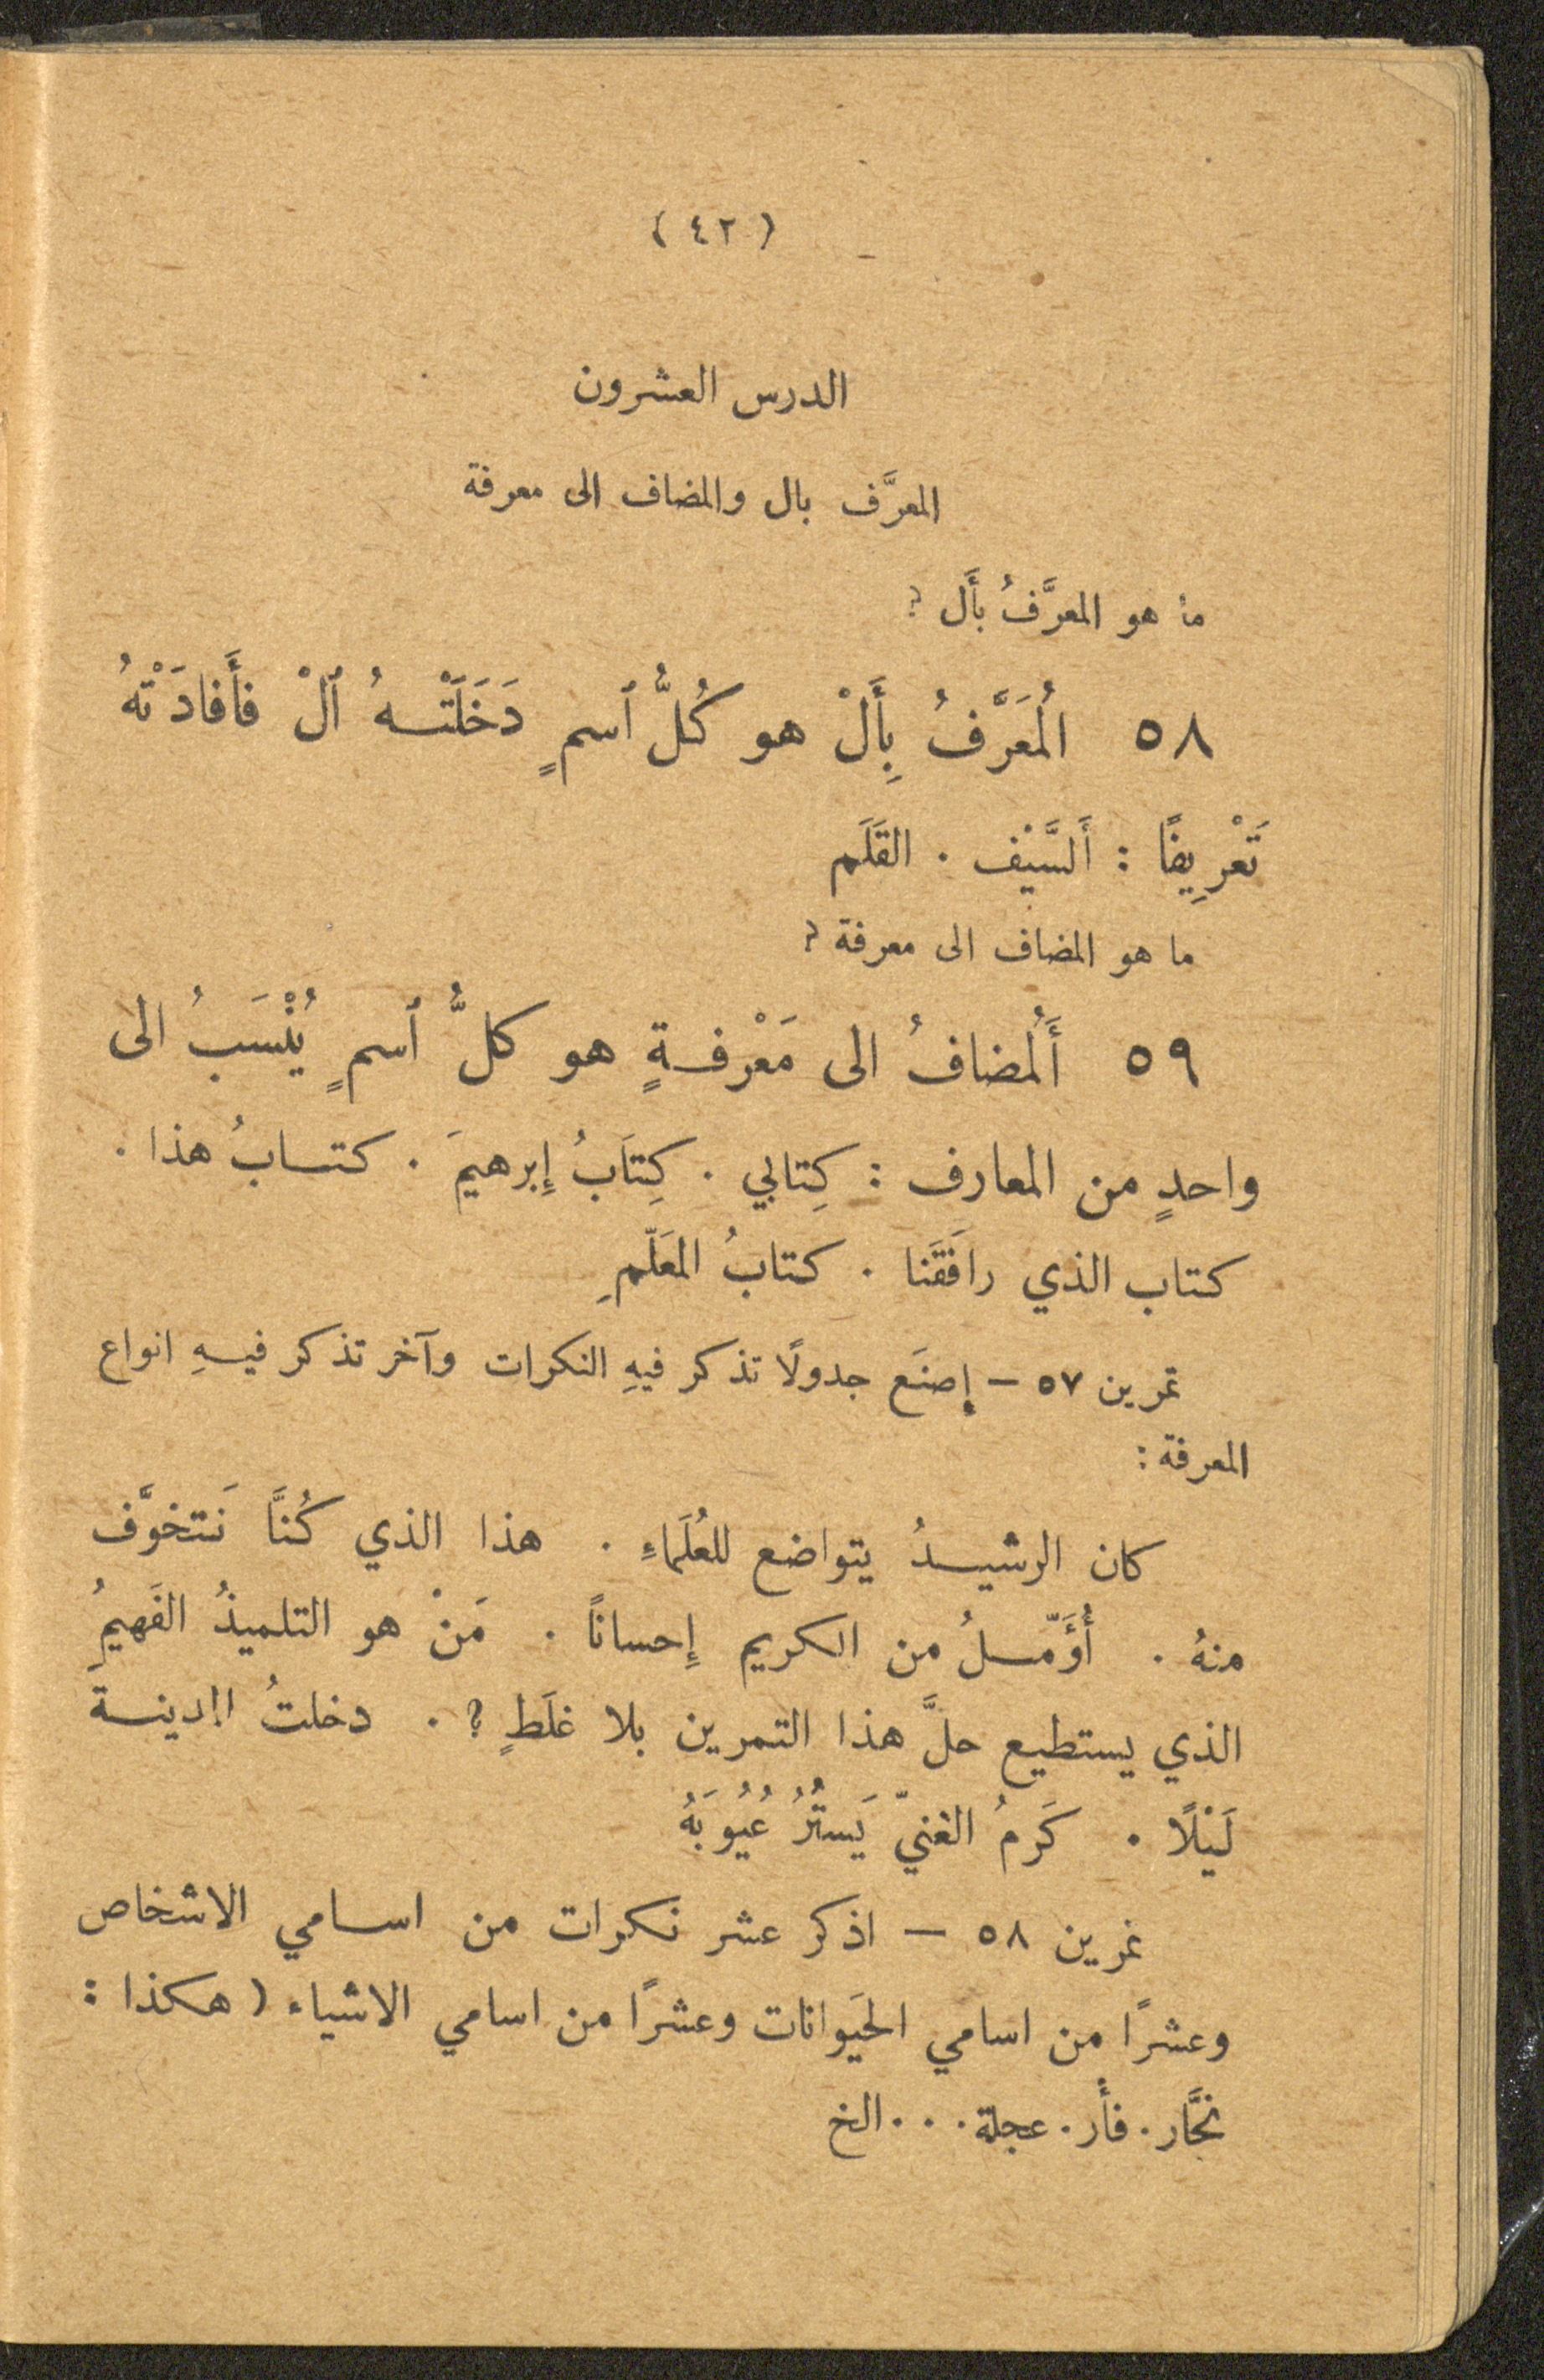 (٤٢)
الدرس العشرون
المعرَّف بال والمضاف الى معرفة
ما هو المعرَّفُ بأَل ؟
٥٨ المُعَرَّفُ بِأَلْ هو كُلُّ ٱسمٍ دَخَلَتْهُ ٱلْ فأَفادَتْهُ
تَعْرِيفًا : أَلسَّيْف . القَلَم
ما هو المضاف الى معرفة ؟
٥٩ أَلمُضافُ الى مَعْرفةٍ هو كلُّ ٱسمٍ يُنْسَبُ الى
واحدٍ من المعارف : كِتابي . كِتَابُ إِبرهيمَ . كتابُ هذا .
كتاب الذي رافَقَنا . كتابُ المعَلّمِ
تمرين ٥٧ — إِصنَع جدولًا تذكر فيهِ النكرات وآخر تذكر فيهِ انواع
المعرفة :
كان الرشيدُ يتواضع للعُلَماءِ . هذا الذي كُنَّا نَتخوَّف
منهُ . أُؤَمّلُ من الكريم إِحسانًا . مَنْ هو التلميذُ الفَهيمُ
الذي يستطيع حلَّ هذا التمرين بلا غلَطٍ ؟ . دخلتُ المدينةَ
لَيْلًا . كَرمُ الغنيّ يَستُرُ عُيُوبَهُ
تمرين ٥٨ — اذكر عشر نكرات من اسامي الاشخاص
وعشرًا من اسامي الحَيَوانات وعشرًا من اسامي الاشياء (هكذا :
نجَّار . فأْر . عجلة . . . الخ